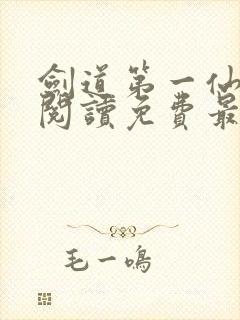 劍道第一仙
閱讀免費最
毛一鳴